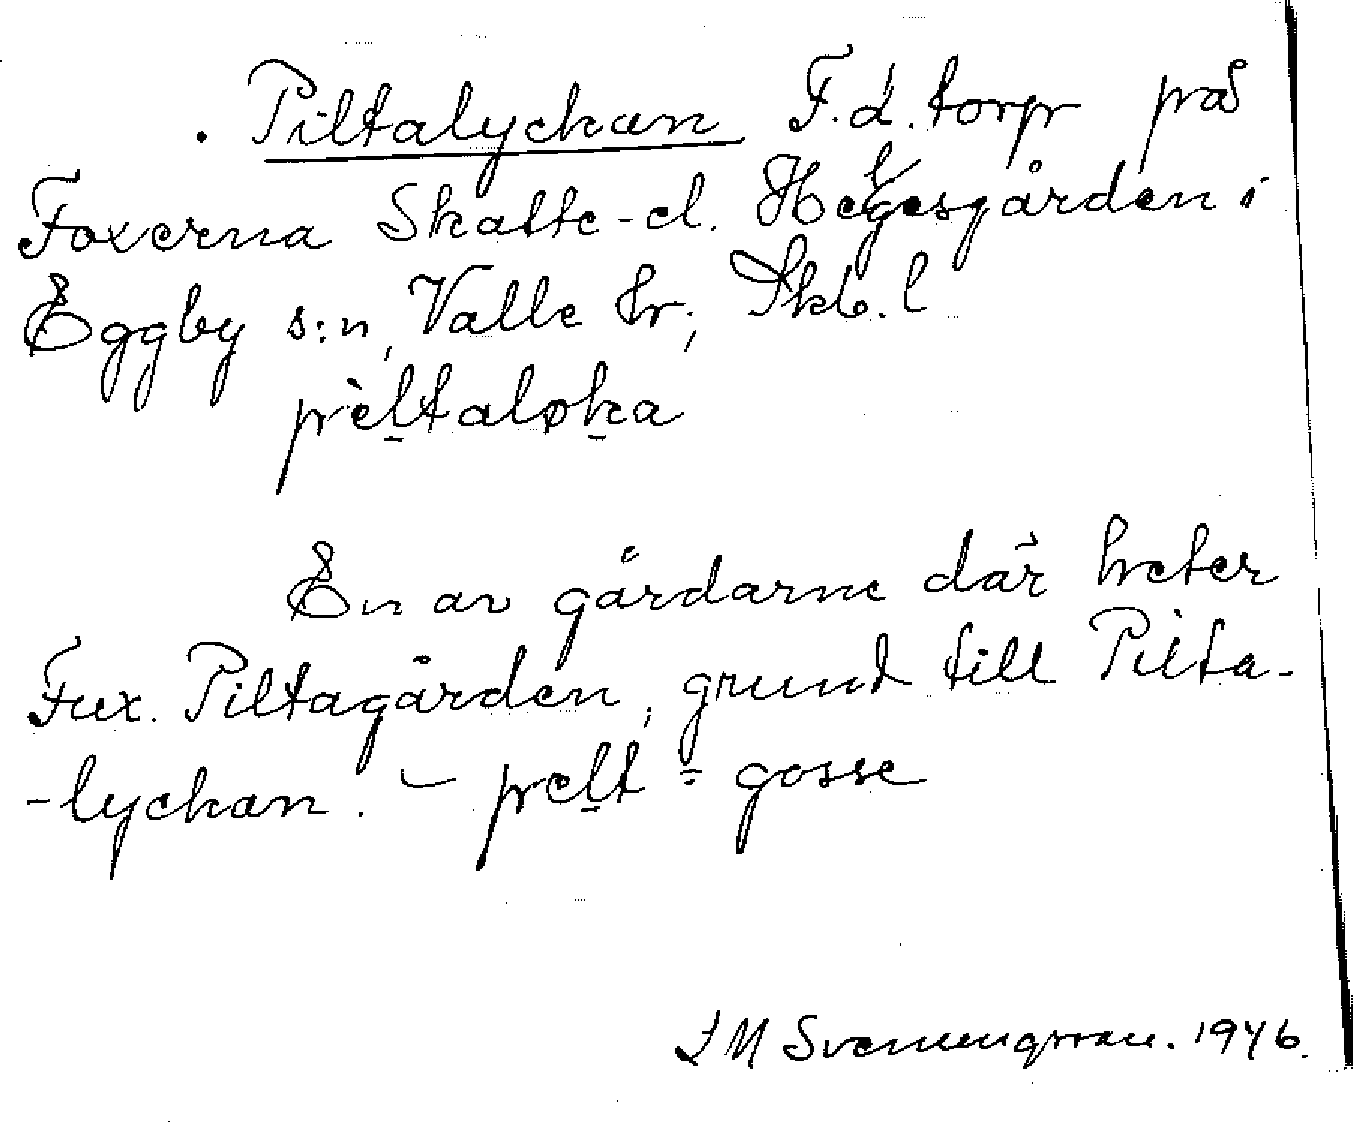 . Piltalyckan F.d. torp på
Foxerna Skatte- el. Helgesgården i
Eggby s:n, Valle hr; Skb. l
pèltaløka
En av gårdarne där heter
Fux. Piltagården, grund till Pilta-
-lyckan. – pelt = gosse
1946.